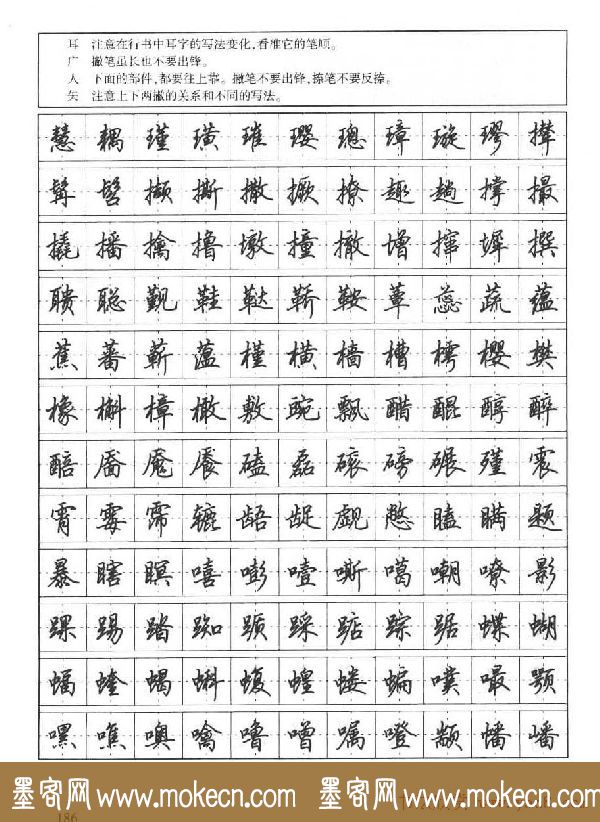 耳 注意在行书中耳字的写法变化,看准它的笔顺。
广 撇笔虽长也不要出锋。
人 下面的部件,都要往上靠。撇笔不要出锋,捺笔不要反捺。
矢 注意上下两撇的关系和不同的写法。
慧 耦 瑾 璜 璀 璎 璁 璋 璇 璆 撵
髯 髫 撷 撕 撒 撅 撩 趣 趟 撑 撮
撬 播 擒 撸 墩 撞 撤 增 撺 墀 撰
聩 聪 觐 鞋 鞑 鞒 鞍 蕈 蕊 蔬 蕴
蕉 蕃 蕲 蕰 槿 横 樯 槽 樗 樱 樊
橡 槲 樟 橄 敷 豌 飘 醋 醌 醇 醉
醅 靥 魇 餍 磕 磊 磙 磅 碾 殣 震
霄 霉 霈 辘 龉 龊 觑 憋 瞌 瞒 题
暴 瞎 瞑 嘻 嘭 噎 嘶 噶 嘲 嘹 影
踝 踢 踏 踟 踬 踩 踮 踪 踞 蝶 蝴
蝠 蝰 蝎 蝌 蝮 蝗 蝼 蝙 噗 嘬 颚
嘿 噍 噢 噙 噜 噌 嘱 噔 颛 幡 嶓
墨客网 www.mokecn.com 墨客网 www.mokecn.com
186